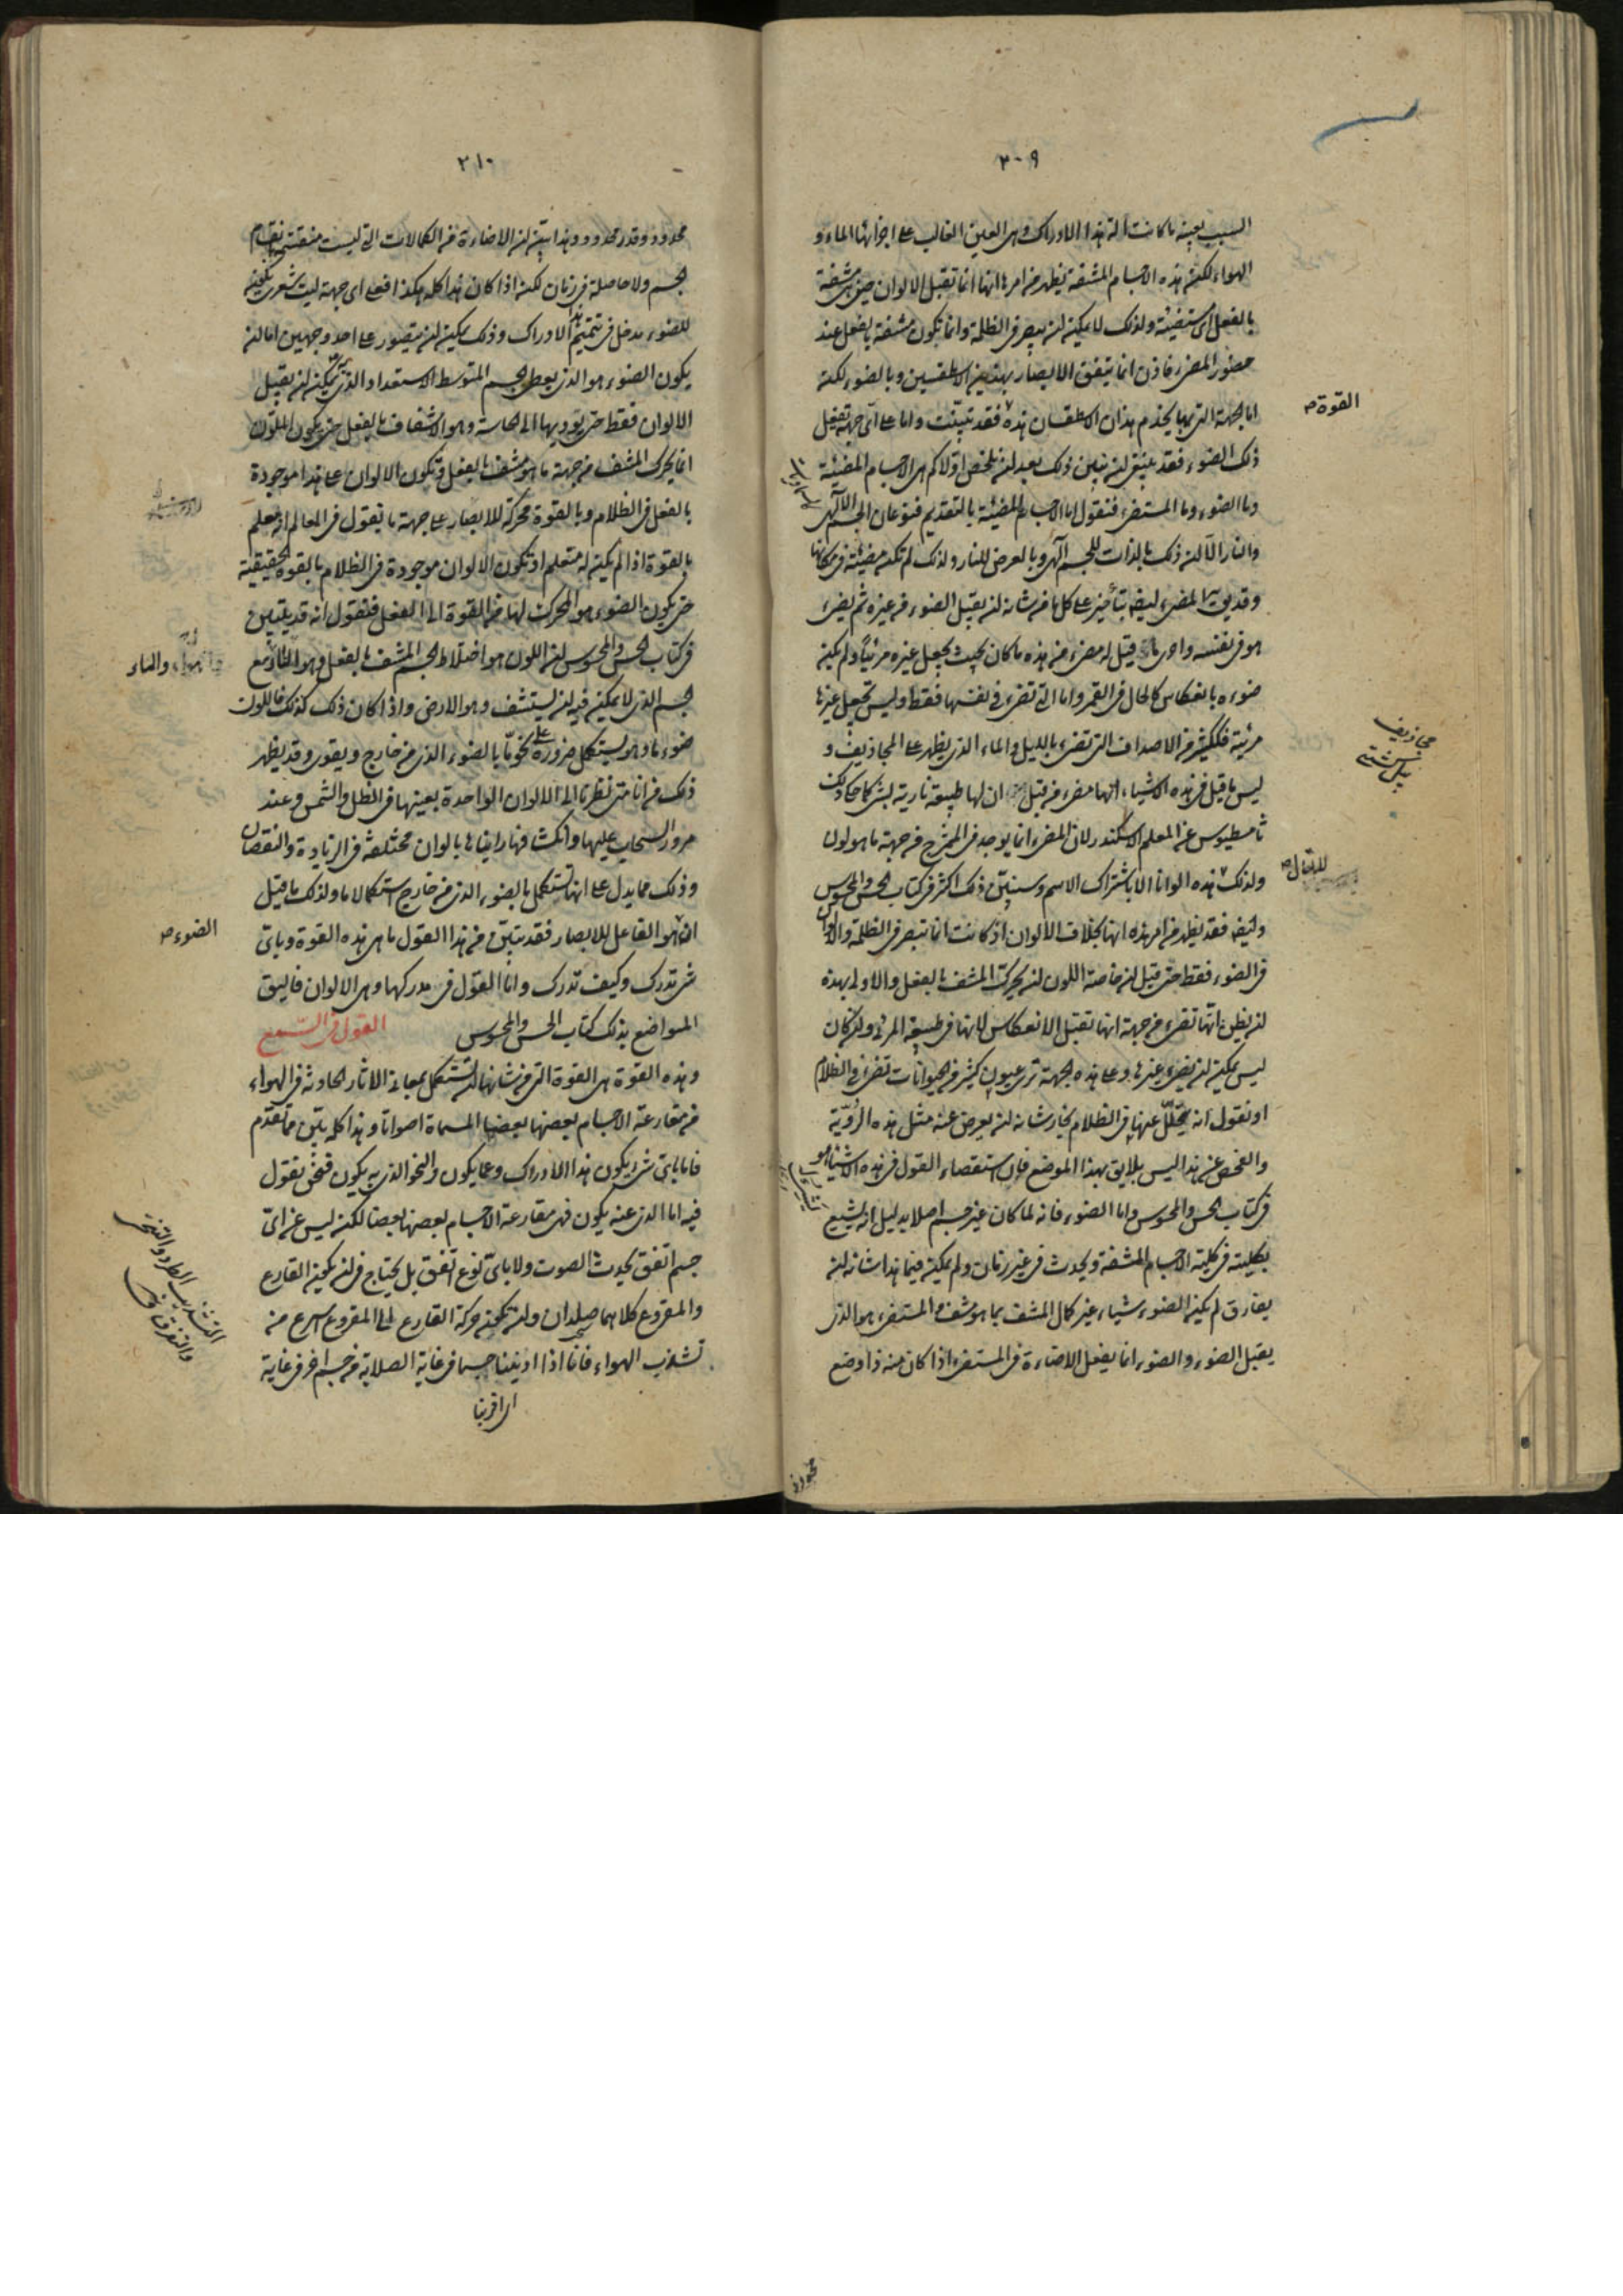 ٣٠٩
السبب بعينه ما كانت آلة هذا الادراك وهى العين الغالب على اجزائها الماء و
الهواء لكن هذه الاجسام المشفة يظهر من امرها انها انما تقبل الالوان حين هى مشفة
بالفعل اى مستضيئة ولذلك لا يمكن ان يبصر فى الظلمة وانما تكون مشفة بالفعل عند
حضور المضىء فاذن انما يتفق الابصار بهذين الاسطقسين وبالضوء لكن
اما الجهة التى بها يخدم هذان الاسطقسان هذه فقد تبينت واما على اى جهة تفعل
القوة صح
ذلك الضوء فقد ينبغى ان نبين ذلك بعد ان نلخص اولا كم هى الاجسام المضيئة
وما الضوء وما المستضىء فنقول اما الاجسام المضيئة بالتقديم فنوعان الجسم الآلهى
والنار الا ان ذلك بالذات للجسم الآلهى وبالعرض للنار ولذلك لم تكن مضيئة فى مكانها
وقد يق المضىء ايضا بتأخير على كل ما من شانه ان يقبل الضوء من غيره ثم يضىء
هو فى نفسه واحرى ما قيل له مضىء من هذه ما كان بحيث يجعل غيره مرئيا ولم يكن
ضوءه بانعكاس كالحال فى القمر واما التى تضىء فى نفسها فقط وليس تجعل غيرها
مرئية فككثير من الاصداف التى تضىء بالليل والماء الذى يظهر على المجاذيف و
مجاذيف
بيل كشتى
ليس ما قيل فى هذه الاشياء انها مضىء من قبل ان لها طبيعة نارية بشىء كما حكا ذلك
ثامسطيوس عن المعلم الاسكندر لان المضىء انما يوجد فى الممتزج من جهة ما هو لون
ولذلك هذه الوانا الا باشتراك الاسم وسنبين ذلك اكثر فى كتاب الحس والمحسوس
لا يقال صح
وايضا فقد يظهر من امر هذه انها بخلاف الالوان اذ كانت انما تبصر فى الظلمة والالوان
فى الضوء فقط حتى قيل ان خاصة اللون ان يحرك المشف بالفعل والاولى بهذه
ان يظن انها تضىء من جهة انها تقبل الانعكاس لا انها فى طبيعة المرئى وان كان
ليس يمكن ان يضىء غيرها وعلى هذه الجهة ترى عيون كثير من الحيوانات تضىء فى الظلام
او نقول انه يتحلل عنها فى الظلام بخار شانه ان يعرض عنه مثل هذه الرؤية
والفحص عن هذا ليس يلايق بهذا الموضع فان استقصاء القول فى هذه الاشياء هو
فى كتاب الحس والمحسوس واما الضوء فانه لما كان غير جسم اصلا بدليل انه يشيع
بكليته فى كلية الاجسام المشفة ويحدث فى غير زمان ولم يمكن فيما هذا شانه ان
يفارق لم يكن الضوء شياء غير كمال المشف بما هو مشف والمستضىء هو الذى
يقبل الضوء والضوء انما يفعل الاضاءة فى المستضىء اذا كان منه ذا وضع
٣١٠
محدود وقدر محدود وهذا بين ان الاضاءة من الكمالات التى ليست منقسمة بانقسام
الجسم ولا حاصلة فى زمان لكن اذا كان هذا كله هكذا فعلى اى جهة ليت شعرى يكون
للضوء مدخل فى تتميم هذا الادراك وذلك يمكن ان يتصور على احد وجهين اما ان
يكون الضوء هو الذى يعطى الجسم المتوسط الاستعداد الذى به يمكن ان يقبل
الالوان فقط حتى يؤديها الى الحاسة وهو الاشفاف بالفعل حتى يكون الملون
انما يحرك المشف من جهة ما هو مشف بالفعل وتكون الالوان على هذا موجودة
بالفعل فى الظلام وبالقوة محركة للابصار على جهة ما نقول فى العالم انه معلم
بالقوة اذا لم يكن له متعلم او تكون الالوان موجودة فى الظلام بالقوة الحقيقية
حتى يكون الضوء هو المحرك لها من القوة الى الفعل فنقول انه قد يتبين
فى كتاب الحس والمحسوس ان اللون هو اختلاط الجسم المشف بالفعل وهو النار مع
والهواء والماء
الجسم الذى لا يمكن فيه ان يستشف وهو الارض واذا كان ذلك كذلك فاللون
ضوء ما وهو يستكمل ضرورة على نحو ما بالضوء الذى من خارج ويقوى وقد يظهر
ذلك من انا متى نظرنا الى الالوان الواحدة بعينها فى الظل والشمس وعند
مرور السحاب عليها وانكشافها رايناها بالوان مختلفة فى الزيادة والنقصان
وذلك مما يدل على انها تستكمل بالضوء الذى من خارج استكمالا ما ولذلك ما قيل
ان هو الفاعل للابصار فقد تبين من هذا القول ما هى هذه القوة وباى
الضوء صح
شى تدرك وكيف تدرك واما القول فى مدركها وهى الالوان فاليق
المواضع بذلك كتاب الحس والمحسوس القول فى السمع
وهذه القوة هى القوة التى من شانها ان تستكمل بمعانى الاثار الحادثة فى الهواء
من مقارعة الاجسام بعضها بعضا المسماة اصواتا وهذا كله بين مما تقدم
فاما باى شى يكون هذا الادراك وعما يكون والنحو الذى به يكون فنحن نقول
فيه اما الذى عنه يكون فهى مقارعة الاجسام بعضها بعضا لكن ليس عن اى
جسم اتفق يحدث الصوت ولا باى نوع اتفق بل يحتاج فى ان يكون القارع
والمقروع كلاهما صلدان وان تكون حركة القارع الى المقروع اسرع من
التشذيب الطرد
والتفرقة ق
تشذب الهواء فانا اذا ادنينا جسما فى غاية الصلابة من جسم اخر فى غاية
اى اقربنا